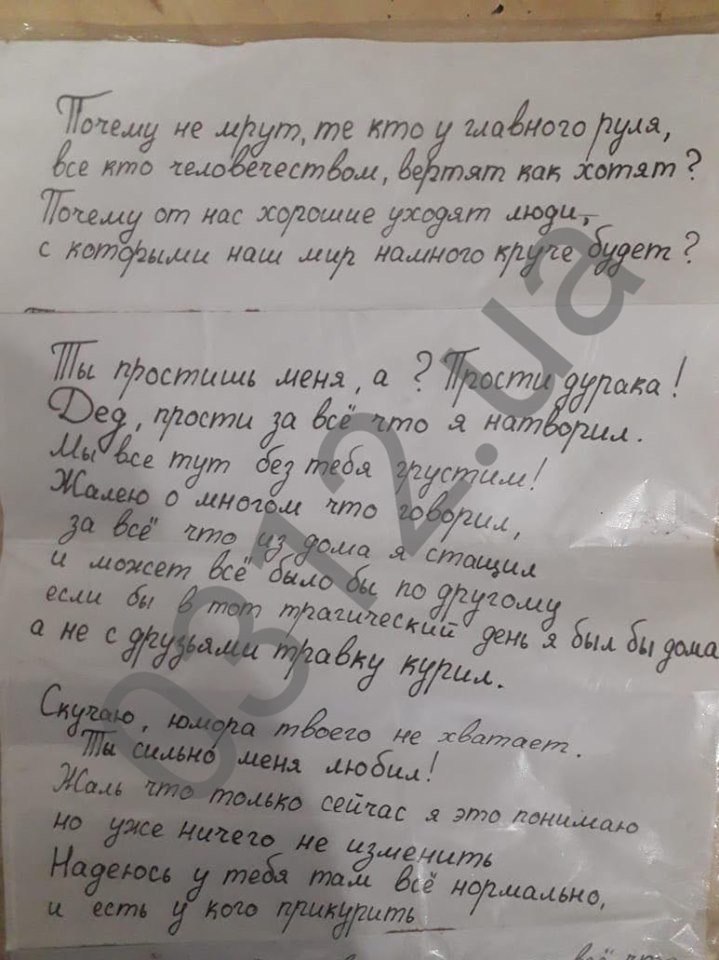 Почему не мрут, те кто у главного руля,
все кто человечеством, вертят как хотят?
Почему от нас хорошие уходят люди,
с которыми наш мир намного круче будет?
Ты простишь меня, а? Прости дурака!
Дед, прости за всё что я натворил.
Мы все тут без тебя грустим!
Жалею о многом что говорил,
за всё что из дома я стащил
и может всё было бы по другому
если бы в тот трагический день я был бы дома
а не с друзьями травку курил.
Скучаю, юмора твоего не хватает.
Ты сильно меня любил!
Жаль что только сейчас я это понимаю
но уже ничего не изменить
Надеюсь у тебя там всё нормально,
и есть у кого прикурить
всё что
0312.ua